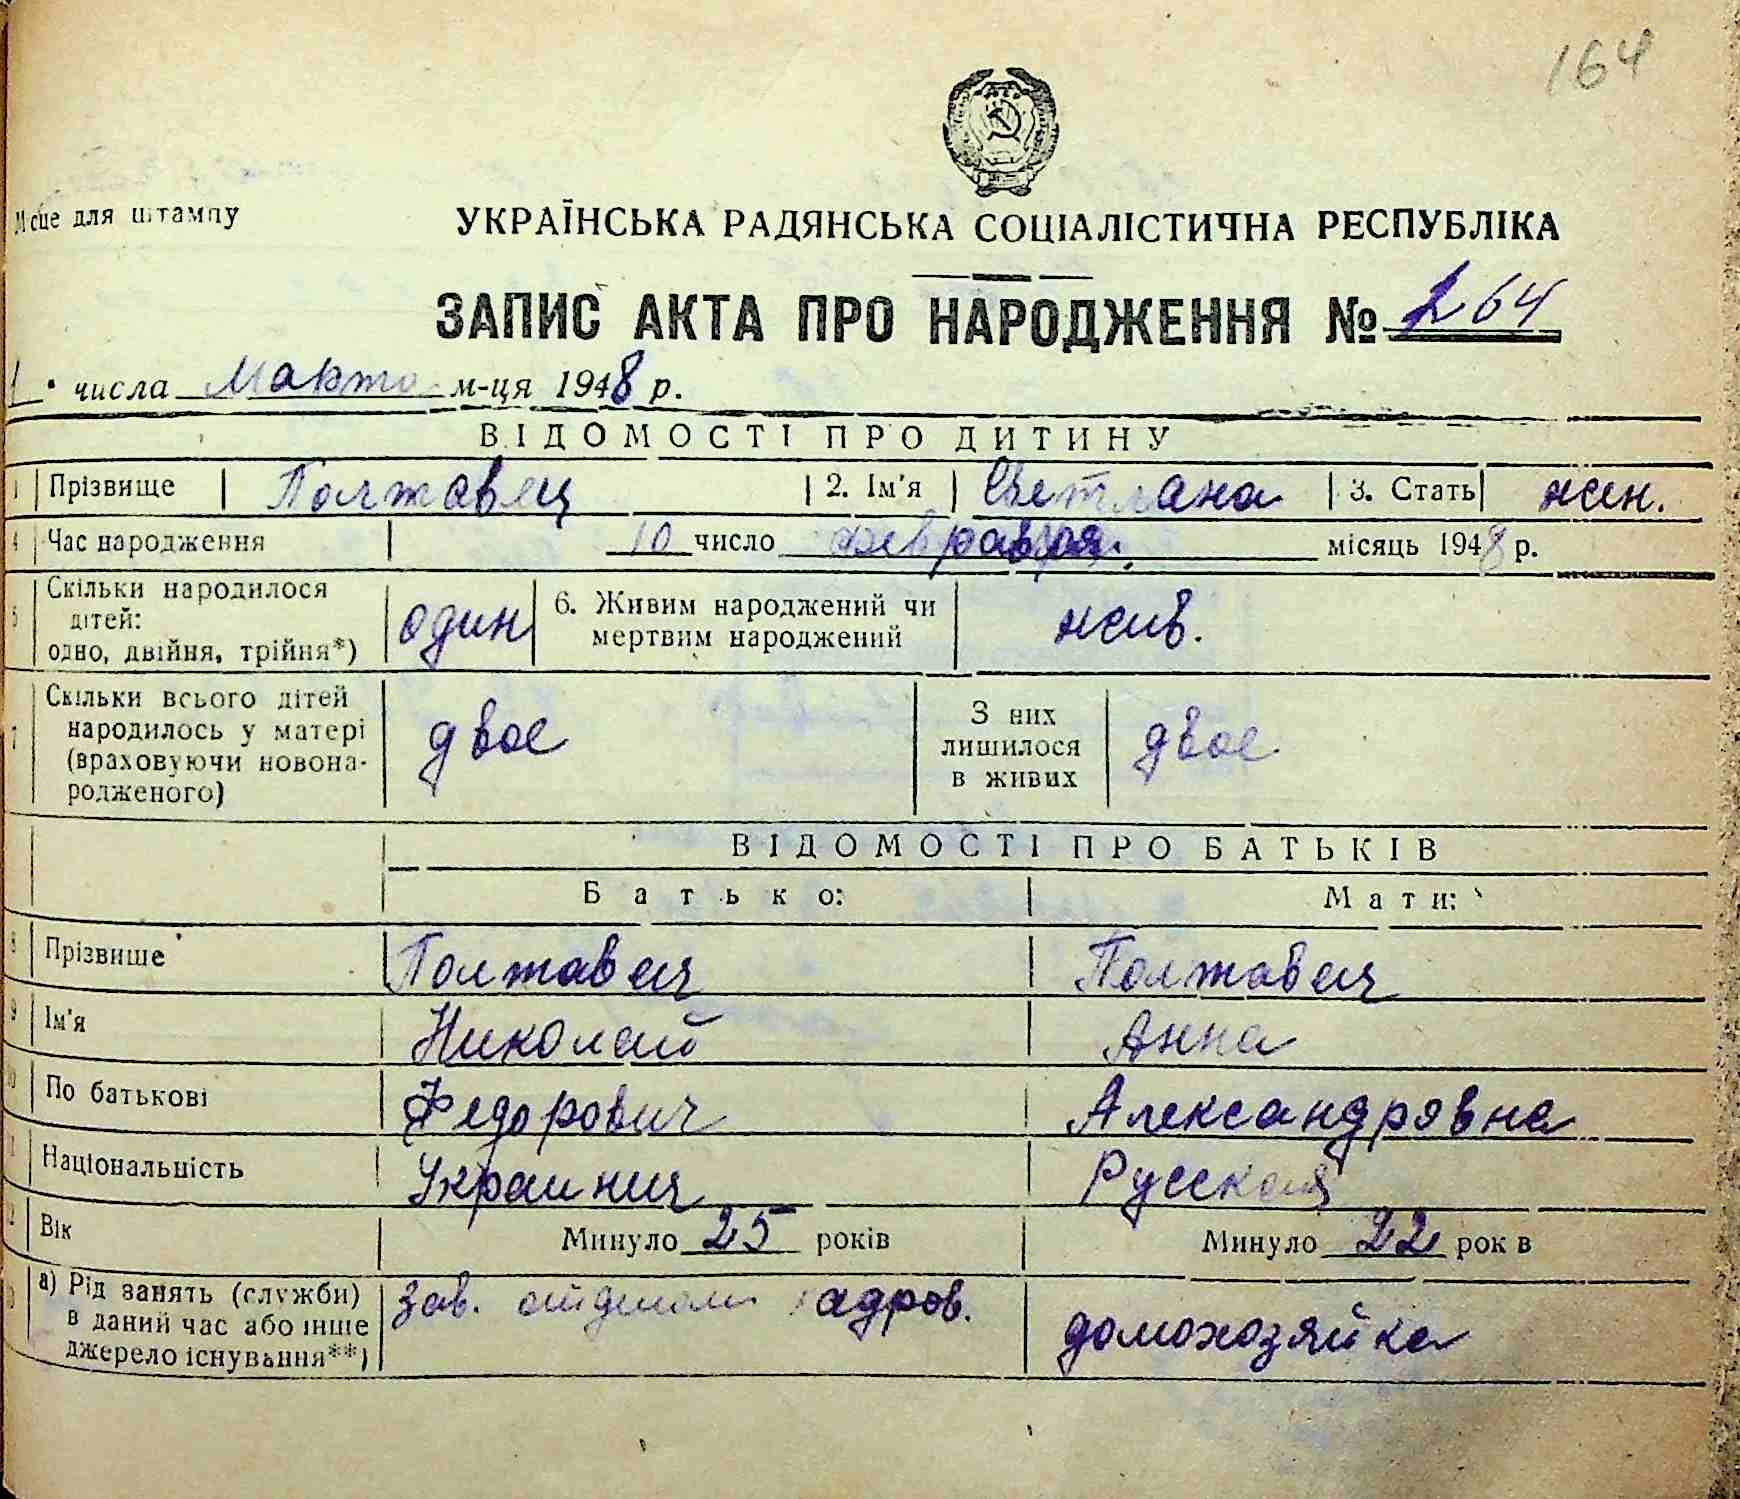 164
Місце для штампу
УКРАЇНСЬКА РАДЯНСЬКА СОЦІАЛІСТИЧНА РЕСПУБЛІКА
ЗАПИС АКТА ПРО НАРОДЖЕННЯ № 264
1 числа Марта м-ця 1948 р.
ВІДОМОСТІ ПРО ДИТИНУ
1 Прізвище Полтавец 2. Ім'я Светлана 3. Стать жен.
4 Час народження 10 число февраля. місяць 1948 р.
5 Скільки народилося дітей: одно, двійня, трійня*) один 6. Живим народжений чи мертвим народжений жив.
7 Скільки всього дітей народилось у матері (враховуючи новонародженого) двое З них лишилося в живих двое
ВІДОМОСТІ ПРО БАТЬКІВ
Батько: Мати:
8 Прізвише Полтавец Полтавец
9 Ім'я Николай Анна
10 По батькові Федорович Александровна
11 Національність Украинец Русская
12 Вік Минуло 25 років Минуло 22 рок в
13 а) Рід занять (служби) в даний час або інше джерело існування**) зав. отделом кадров. домохозяйка